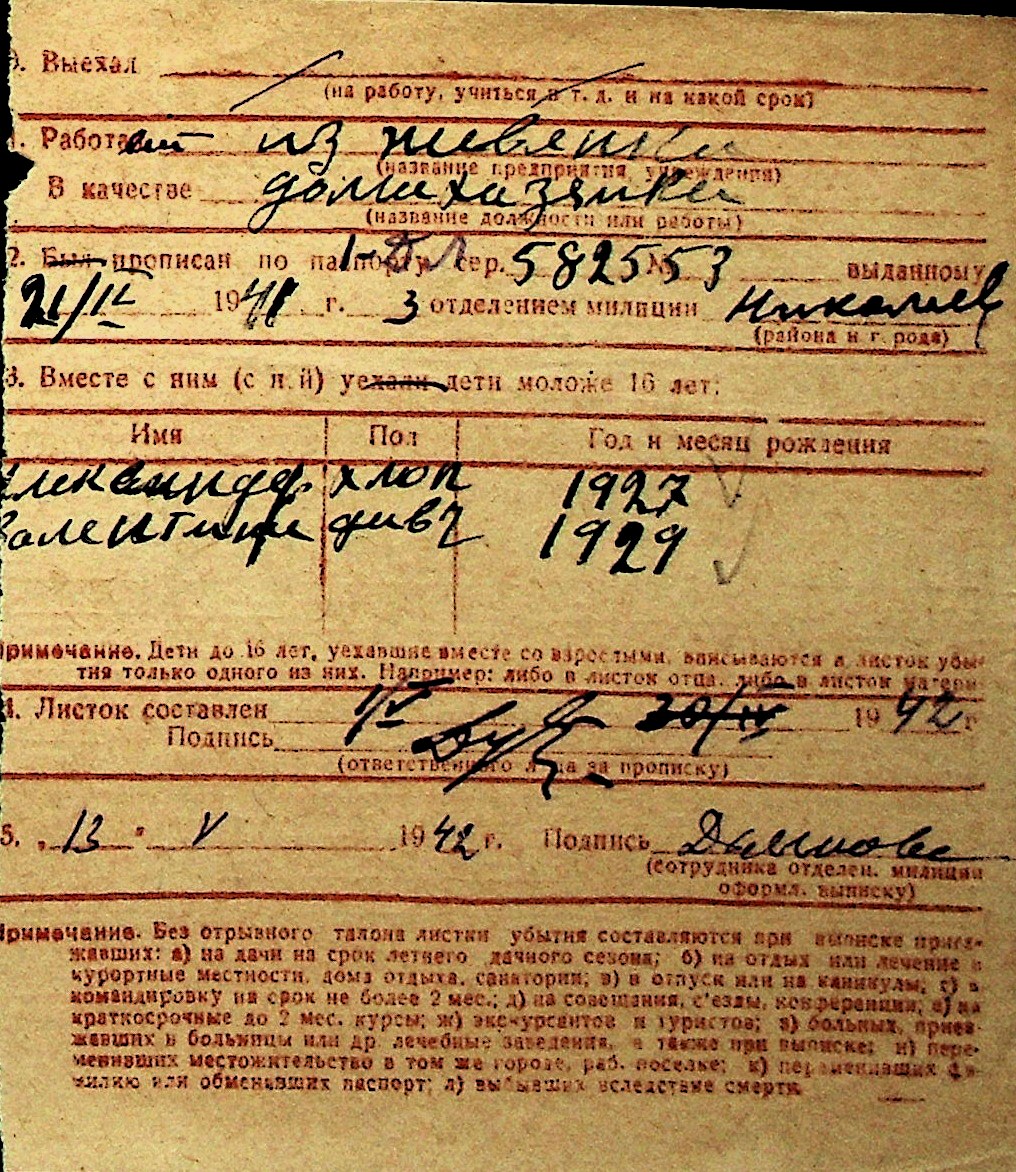 0. Выехал
(на работу, учиться и т. д. и на какой срок)
1. Работает из
(название предприятия, учреждения)
В качестве домахазяйки
(название должности или работы)
2. Был прописан по паспорту сер. 582553 № выданному
21/IV 1941 г. 3 отделением милиции Николаев
(района и г. рода)
3. Вместе с ним (с н.й) уехали дети моложе 16 лет:
Имя Пол Год и месяц рождения
Александр хлоп 1927
Валентина дивч 1929
Примечание. Дети до 16 лет, уехавшие вместе со взрослыми, вписываются в листок убы-
тия только одного из них. Например: либо в листок отца, либо в листок матери
4. Листок составлен 1/V 30/IV 1942 г
Подпись
(ответственного лица за прописку)
5. „13" V 1942 г. Подпись
(сотрудника отделен. милиции
оформл. выписку)
Примечание. Без отрывного талона листки убытия составляются при выписке приез-
жавших: а) на дачи на срок летнего дачного сезона; б) на отдых или лечение в
курортные местности, дома отдыха, санатории; в) в отпуск или на каникулы; г) в
командировку на срок не более 2 мес.; д) на совещания, с'езды, конференции; е) на
краткосрочные до 2 мес. курсы; ж) экскурсантов и туристов; з) больных, приез-
жавших в больницы или др. лечебные заведения, а также при выписке; и) пере-
менивших местожительство в том же городе, раб. поселке; к) переменивших фа-
милию или обменявших паспорт; л) выбывших вследствие смерти.